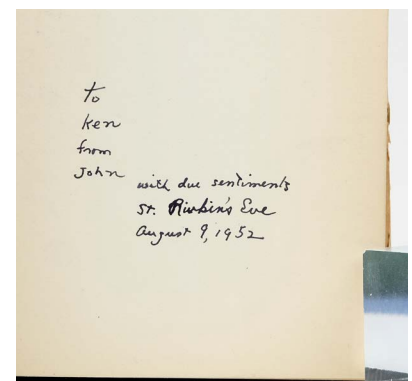 to
Ken
from
John
with due sentiments
St. Rivkin's Eve
August 9, 1952